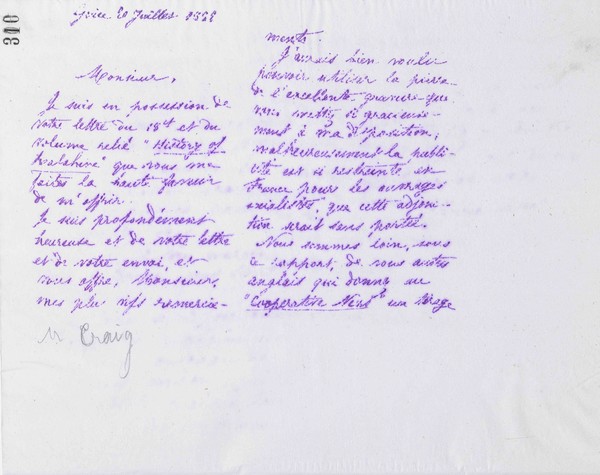 310
Guise 20 Juillet 1888
Monsieur,
Je suis en possession de
votre lettre du 18 et et du
volume relié "History of
Ralahine" que vous me
faites la haute faveur
de m'offrir.
Je suis profondément
heureuse et de votre lettre
et de votre envoi, et
vous offre, Monsieur,
mes plus vifs remercie-
ments.
J'aurais bien voulu
pouvoir utiliser la
de l'excellente gravure que
vous mettez si gracieuse-
ment à ma disposition;
malheureusement la publi-
cité est si restreinte en
France pour les ouvrages
socialistes, que cette adjonc-
tion serait sans portée.
Nous sommes loin, sous
ce rapport, de vous autres
anglais qui donnez au
"Cooperative News" un tirage
M. Craig